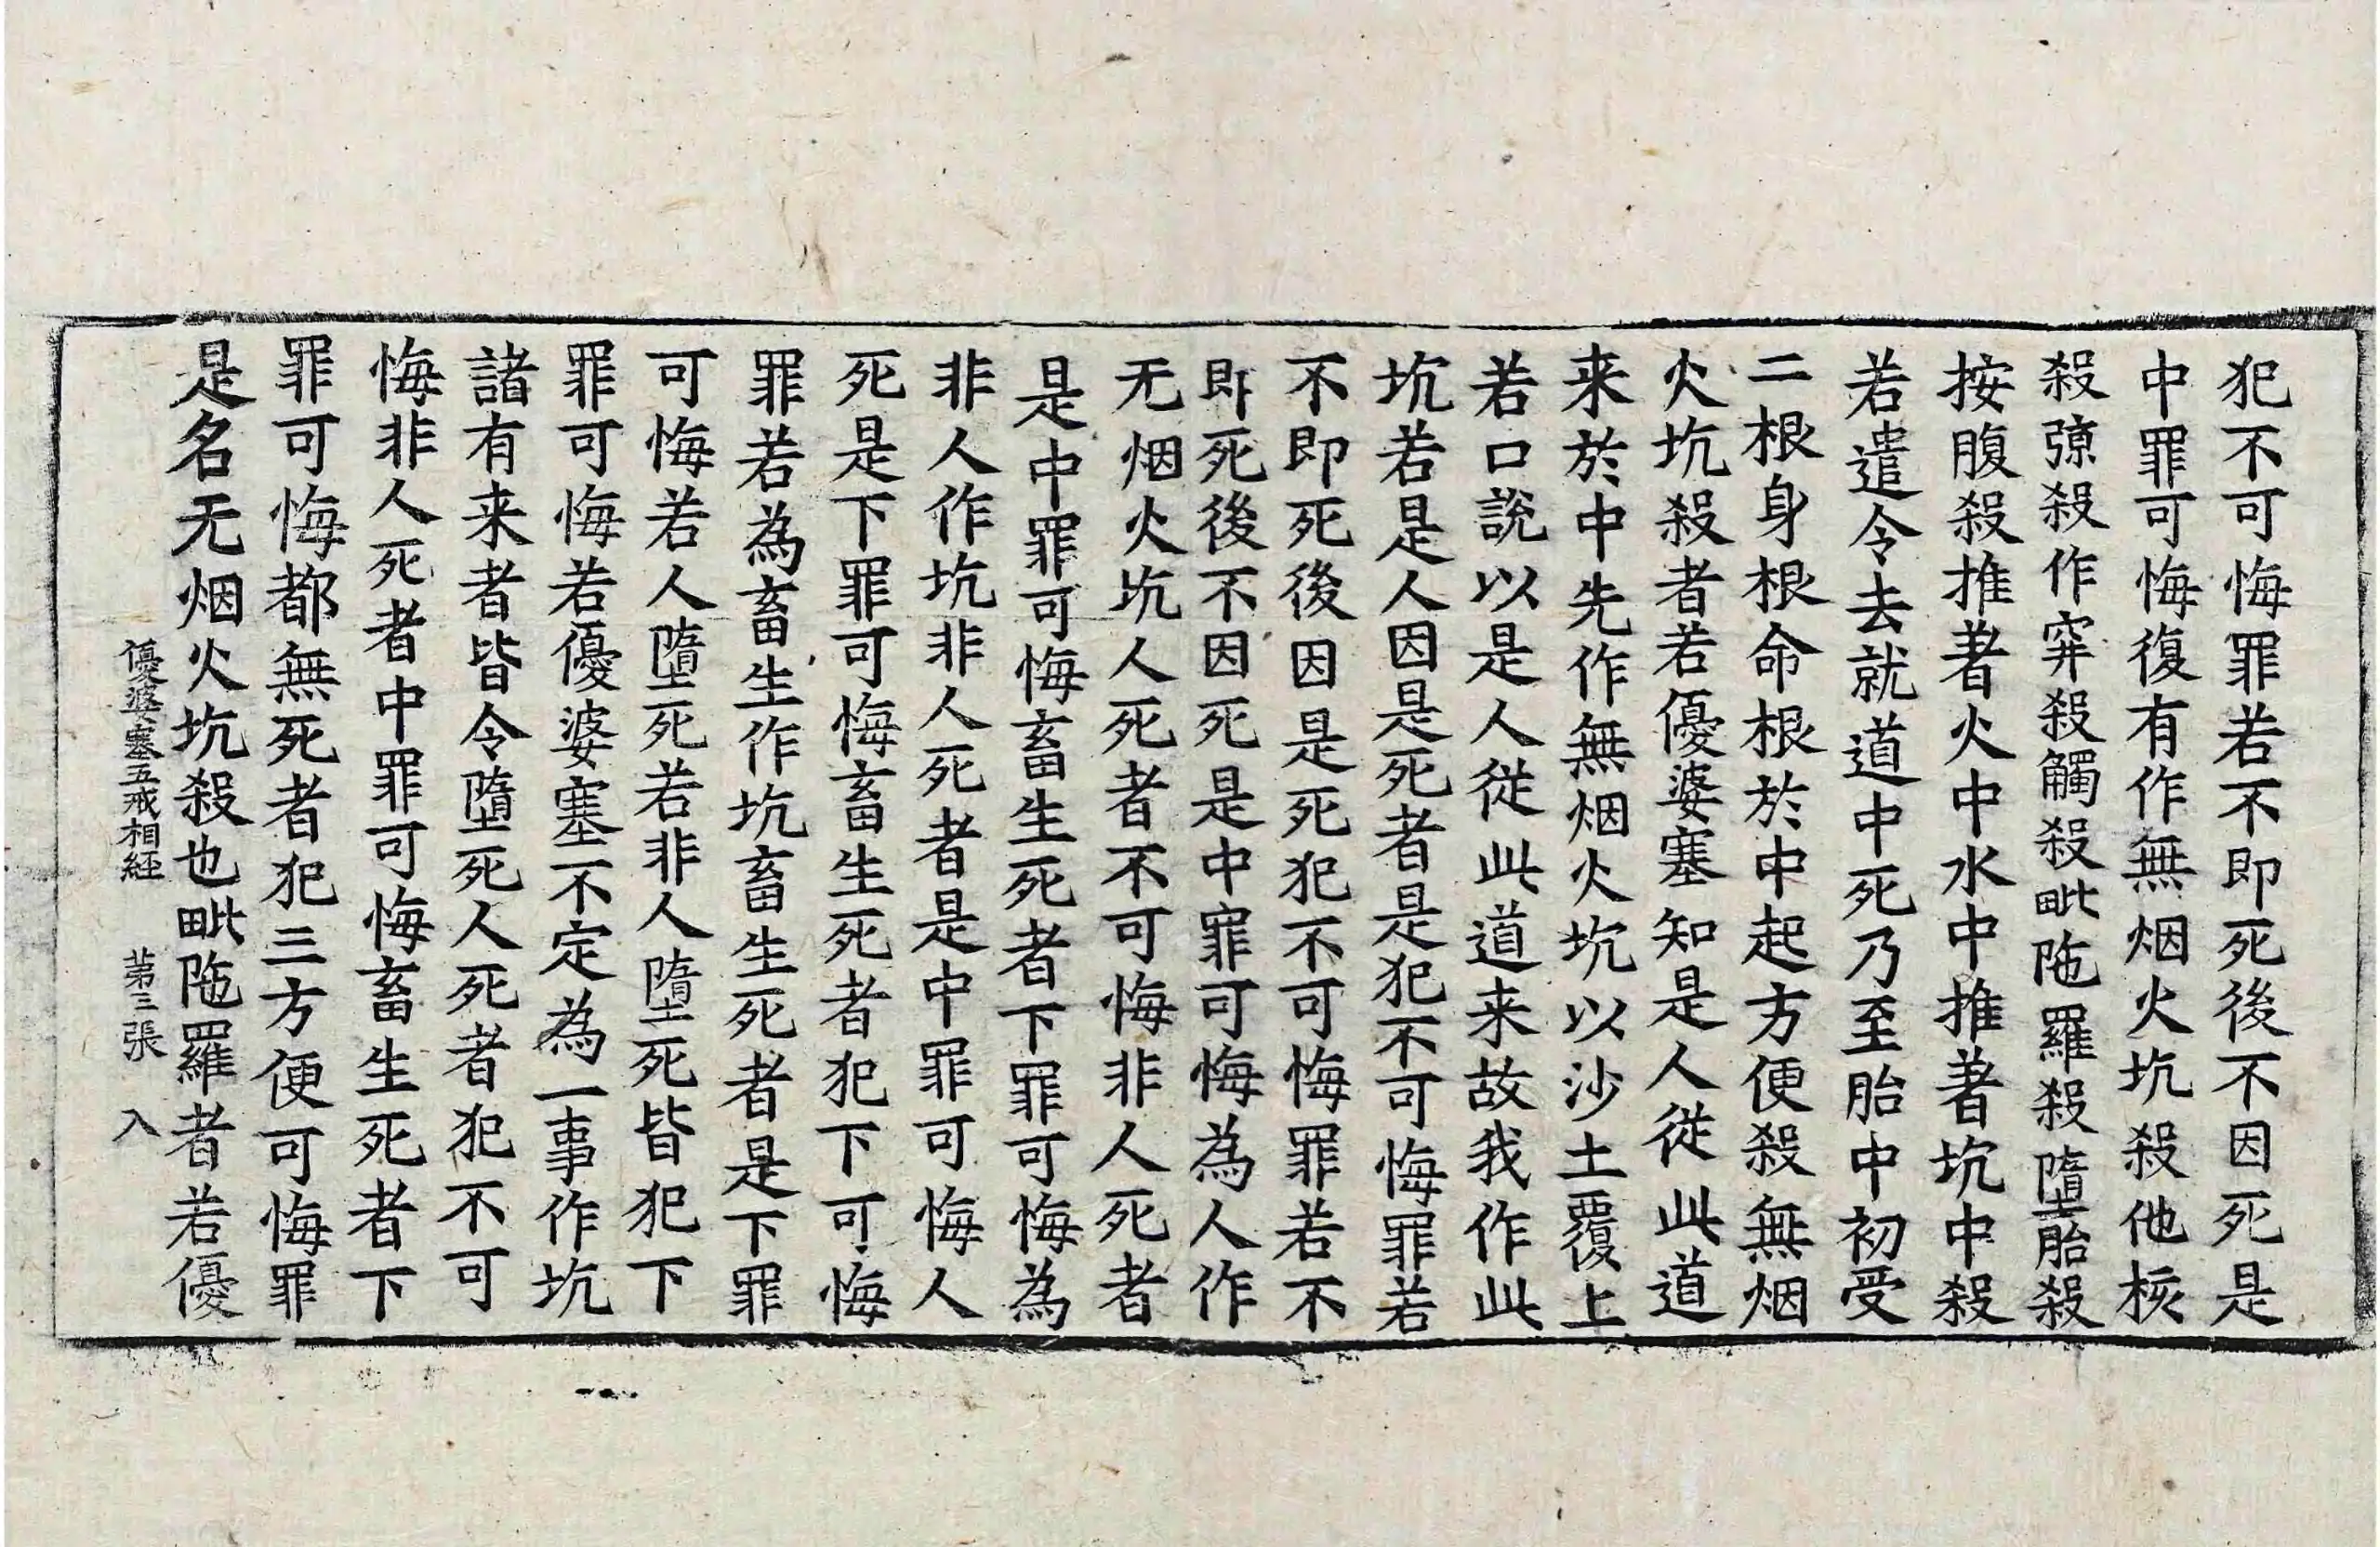 犯不可悔罪若不即死後不因死是
中罪可悔復有作無烟火坑殺他核
殺弶殺作穽殺觸殺毗陁羅殺墮胎殺
按腹殺推著火中水中推著坑中殺
若遣令去就道中死乃至胎中初受
二根身根命根於中起方便殺無烟
火坑殺者若優婆塞知是人從此道
来於中先作無烟火坑以沙土覆上
若口說以是人從此道来故我作此
坑若是人因是死者是犯不可悔罪若
不即死後因是死犯不可悔罪若不
即死後不因死是中罪可悔為人作
无烟火坑人死者不可悔非人死者
是中罪可悔畜生死者下罪可悔為
非人作坑非人死者是中罪可悔人
死是下罪可悔畜生死者犯下可悔
罪若為畜生作坑畜生死者是下罪
可悔若人墮死若非人墮死皆犯下
罪可悔若優婆塞不定為一事作坑
諸有来者皆令墮死人死者犯不可
悔非人死者中罪可悔畜生死者下
罪可悔都無死者犯三方便可悔罪
是名无烟火坑殺也毗陁羅者若優
優婆塞五戒相経　第三張　入